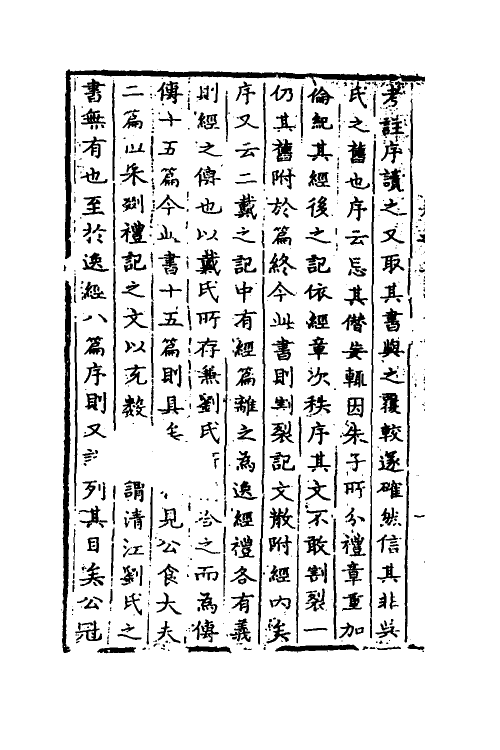 考註序讀之又取其書與之覆較遂確然信其非吳
氏之舊也序云忘其僭妄輒因朱子所分禮章重加
倫紀其經後之記依經章次秩序其文不敢割裂一
仍其舊附於篇終今此書則割裂記文散附經內矣
序又云二戴之記中有經篇離之為逸經禮各有義
則經之傳也以戴氏所存兼劉氏所 合之而為傳
傳十五篇今此書十五篇則具矣 見公食大夫
二篇以采掇禮記之文以充數 謂清江劉氏之
書無有也至於逸經八篇序則又 列其目矣公冠